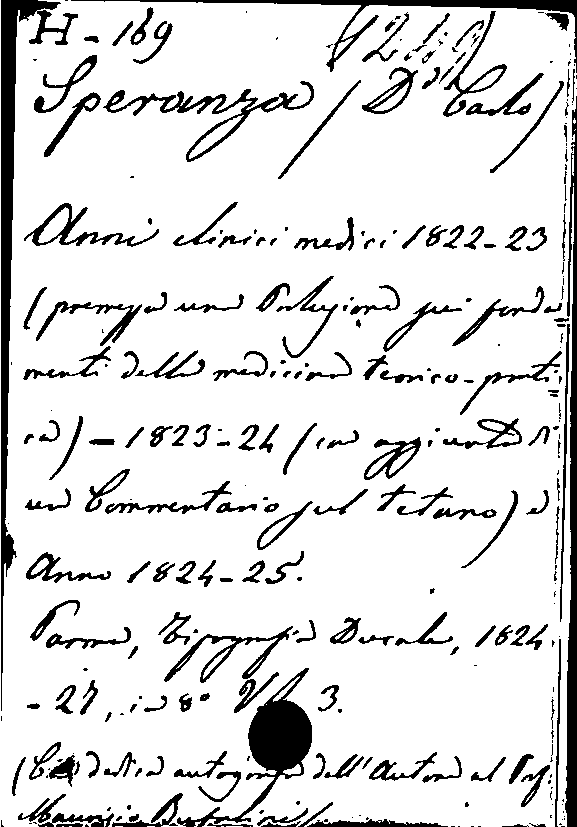 H - 169 (1249)
Speranza (D.r Carlo)
Anni clinici medici 1822-23
(premessa una Prolusione sui fonda=
menti della medicina teorico-prati=
ca) - 1823-24 (con aggiunta di
un Commentario sul tetano) e
Anno 1824-25.
Parma, Tipografia Ducale, 1824
-27, in 8° Vol. 3.
(Con dedica autografa dell'Autore al Prof.
Maurizio Bufalini).